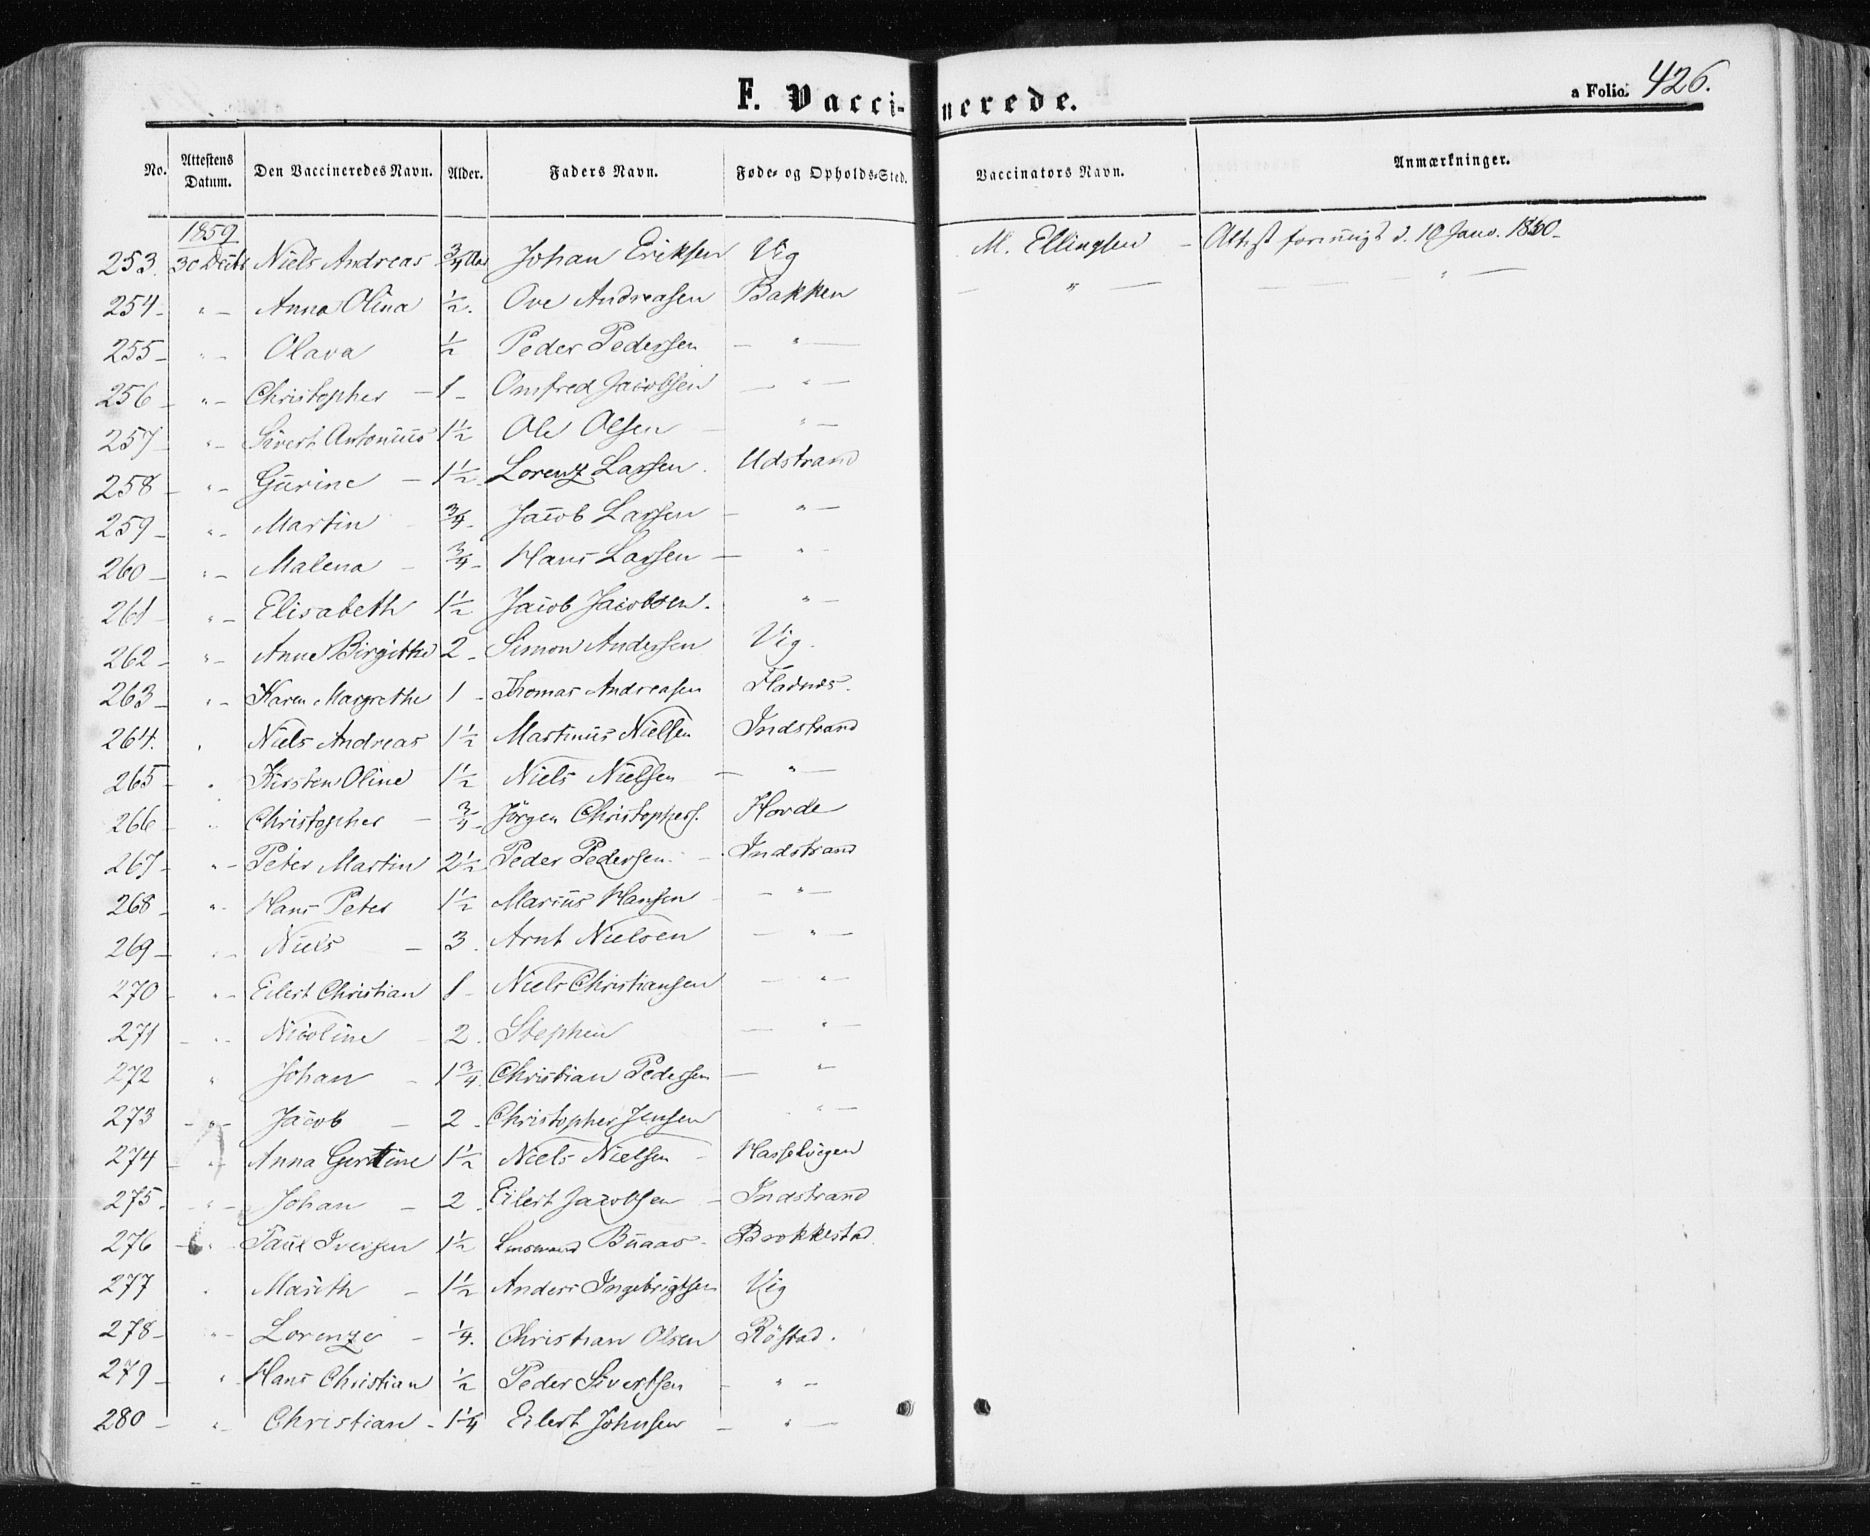 F. Vaccinerede.
a Folio. 426.
No. Attestens Datum. Den Vaccineredes Navn. Alder. Faders Navn. Føde- og Opholds-Sted. Vaccinators Navn. Anmærkninger.
1859
253. 30 Decb Niels Andreas 3/4 Aar Johan Eriksen Vig M. Ellingsen - Attest d. 10 Janv. 1860-
254 - " - Anna Olina 1/2. Ove Andreasen Bakken - " - - " -
255 - " - Olava 1/2 Peder Pedersen - " -
256 - " - Christopher - 1 - Omfred Jacobsen - " -
257 - " - Sivert Antonius 1 1/2 Ole Olsen - " -
258 - " - Gurine - 1 1/2 Lorenz Larsen. Udstrand
259 - " - Martin 3/4 - Jacob Larsen - " -
260 - " - Malena - 3/4 - Hans Larsen - " -
261 - " - Elisabeth 1 1/2 Jacob Jacobsen. " -
262 - " - Anne Birgithe 2 - Simon Andersen Vig.
263 - " - Karen Margrethe 1 - Thomas Andreasen Fladnes.
264. " Niels Andreas 1 1/2 Martinus Nielsen Indstrand
265 - " Kirsten Oline 1 1/2 Niels Nielsen - " -
266 - " Christopher - 3/4 - Jörgen Christophers. Hovde
267 " - Peter Martin 2 1/2 Peder Pedersen. - Indstrand
268 - " - Hans Peter 1 1/2 Marius Hansen - " -
269 - " - Niels - 3. Arnt Nielsen - " -
270 - " - Eilert Christian 1 - Niels Christiansen - " -
271 - " - Nicoline - 2. Stephen - " -
272 " Johan - 1 3/4. Christian Pedersen - " -
273 - " - Jacob - 2 - Christopher Jensen " -
274 - " - Anna Gertine 1 1/2 Niels Nielsen - Hasselvigen
275 - " - Johan - 2. Eilert Jacobsen - Indstrand
276 - " - Paul Iversen 1 1/2 Buaas - Brokkestad.
277 " Marith - 1 1/2 Anders Ingebrigtsen Vig
278 - " - Lorenze - 1/4. Christian Olsen Röstad.
279 - " - Hans Christian 1/2 Peder Sivertsen - " -
280 - " - Christian - 1 1/4 Eilert Johnsen - " -